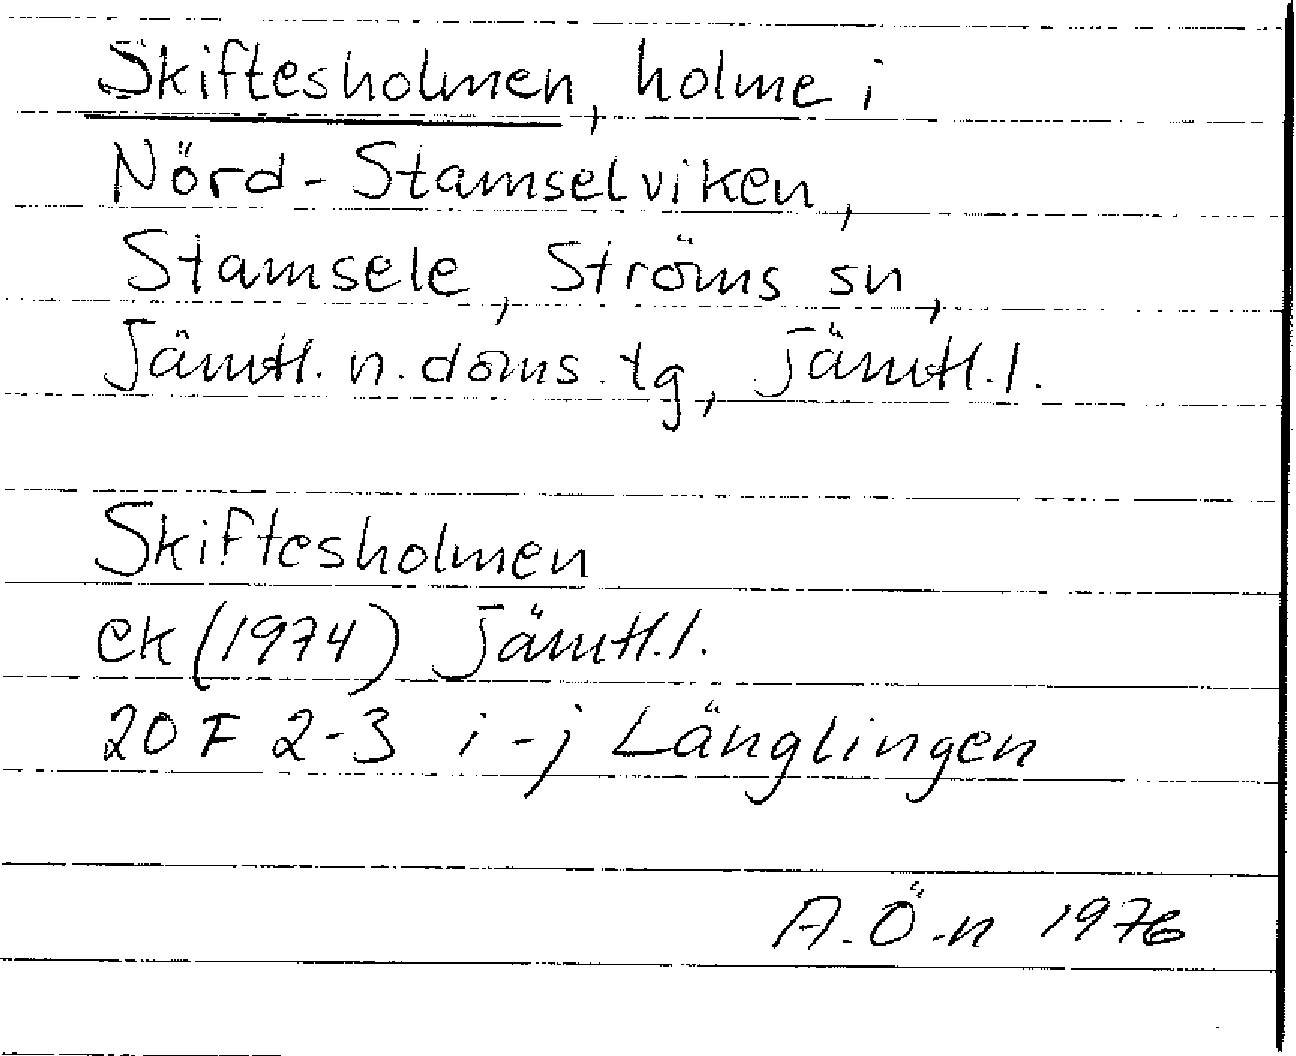 Skiftesholmen, holme i
Nörd-Stamselviken,
Stamsele, Ströms sn,
Jämtl. n. doms. tg, Jämtl. l.
Skiftesholmen
ek (1974) Jämtl. l.
20 F 2-3 i-j Länglingen
A. Ö-n 1976